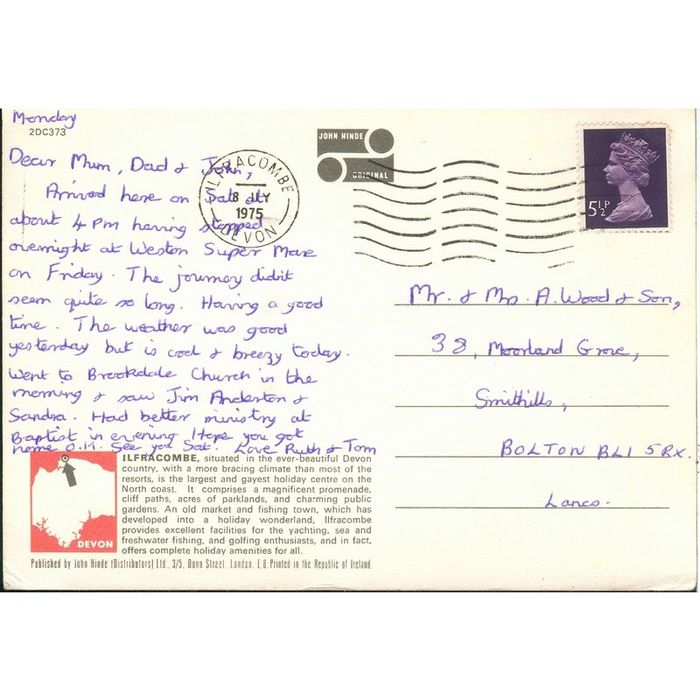 Monday
2DC373
Dear Mum, Dad & John,
Arrived here on Sat at
about 4 PM having stopped
overnight at Weston Super Mare
on Friday. The journey didn't
seem quite so long. Having a good
time. The weather was good
yesterday but is cool & breezy today.
Went to Brookdale Church in the
morning & saw Jim Anderton &
Sandra. Had better ministry at
Baptist in evening. Hope you got
home O.K. See you Sat. Love Ruth & Tom
JOHN HINDE
ORIGINAL
ILFRACOMBE
8 JLY
1975
DEVON
5½P
Mr. & Mrs. A. Wood & Son,
38, Moorland Grove,
Smithills,
BOLTON BL1 5RX.
Lancs.
ILFRACOMBE, situated in the ever-beautiful Devon
country, with a more bracing climate than most of the
resorts, is the largest and gayest holiday centre on the
North coast. It comprises a magnificent promenade,
cliff paths, acres of parklands, and charming public
gardens. An old market and fishing town, which has
developed into a holiday wonderland, Ilfracombe
provides excellent facilities for the yachting, sea and
freshwater fishing, and golfing enthusiasts, and in fact,
offers complete holiday amenities for all.
DEVON
Published by John Hinde (Distributors) Ltd., 3/5, Dunn Street, London, E.8 Printed in the Republic of Ireland